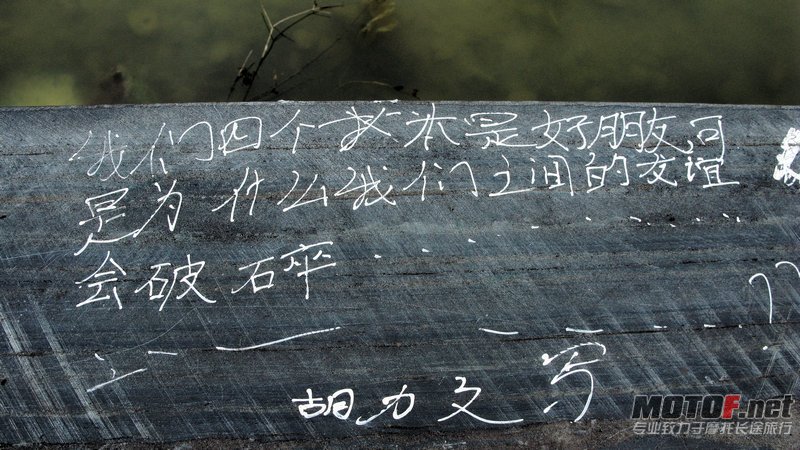 我们四个基本是好朋友可
是为什么我们之间的友谊
会破碎............
??
胡力文写
MOTOF.net
专业致力于摩托长途旅行